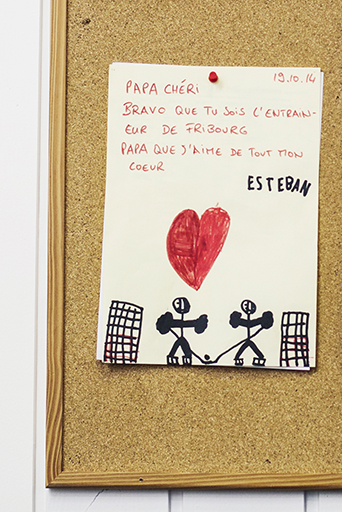 19.10.14
PAPA CHÉRI
BRAVO QUE TU SOIS L'ENTRAIN-
EUR DE FRIBOURG
PAPA QUE J'AIME DE TOUT MON
COEUR
ESTEBAN